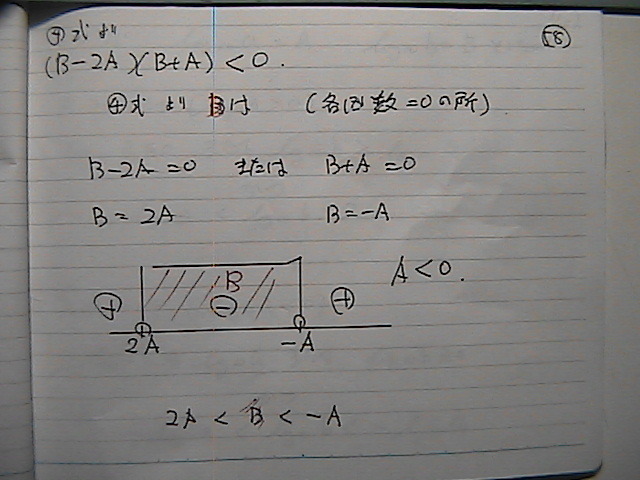 ㋔式より
58
(B-2A)(B+A) < 0.
㋔式より Bは (各因数=0の所)
B-2A=0 または B+A=0
B = 2A B=-A
A<0.
B
⊕ ⊖ ⊕
2A -A
2A < B < -A